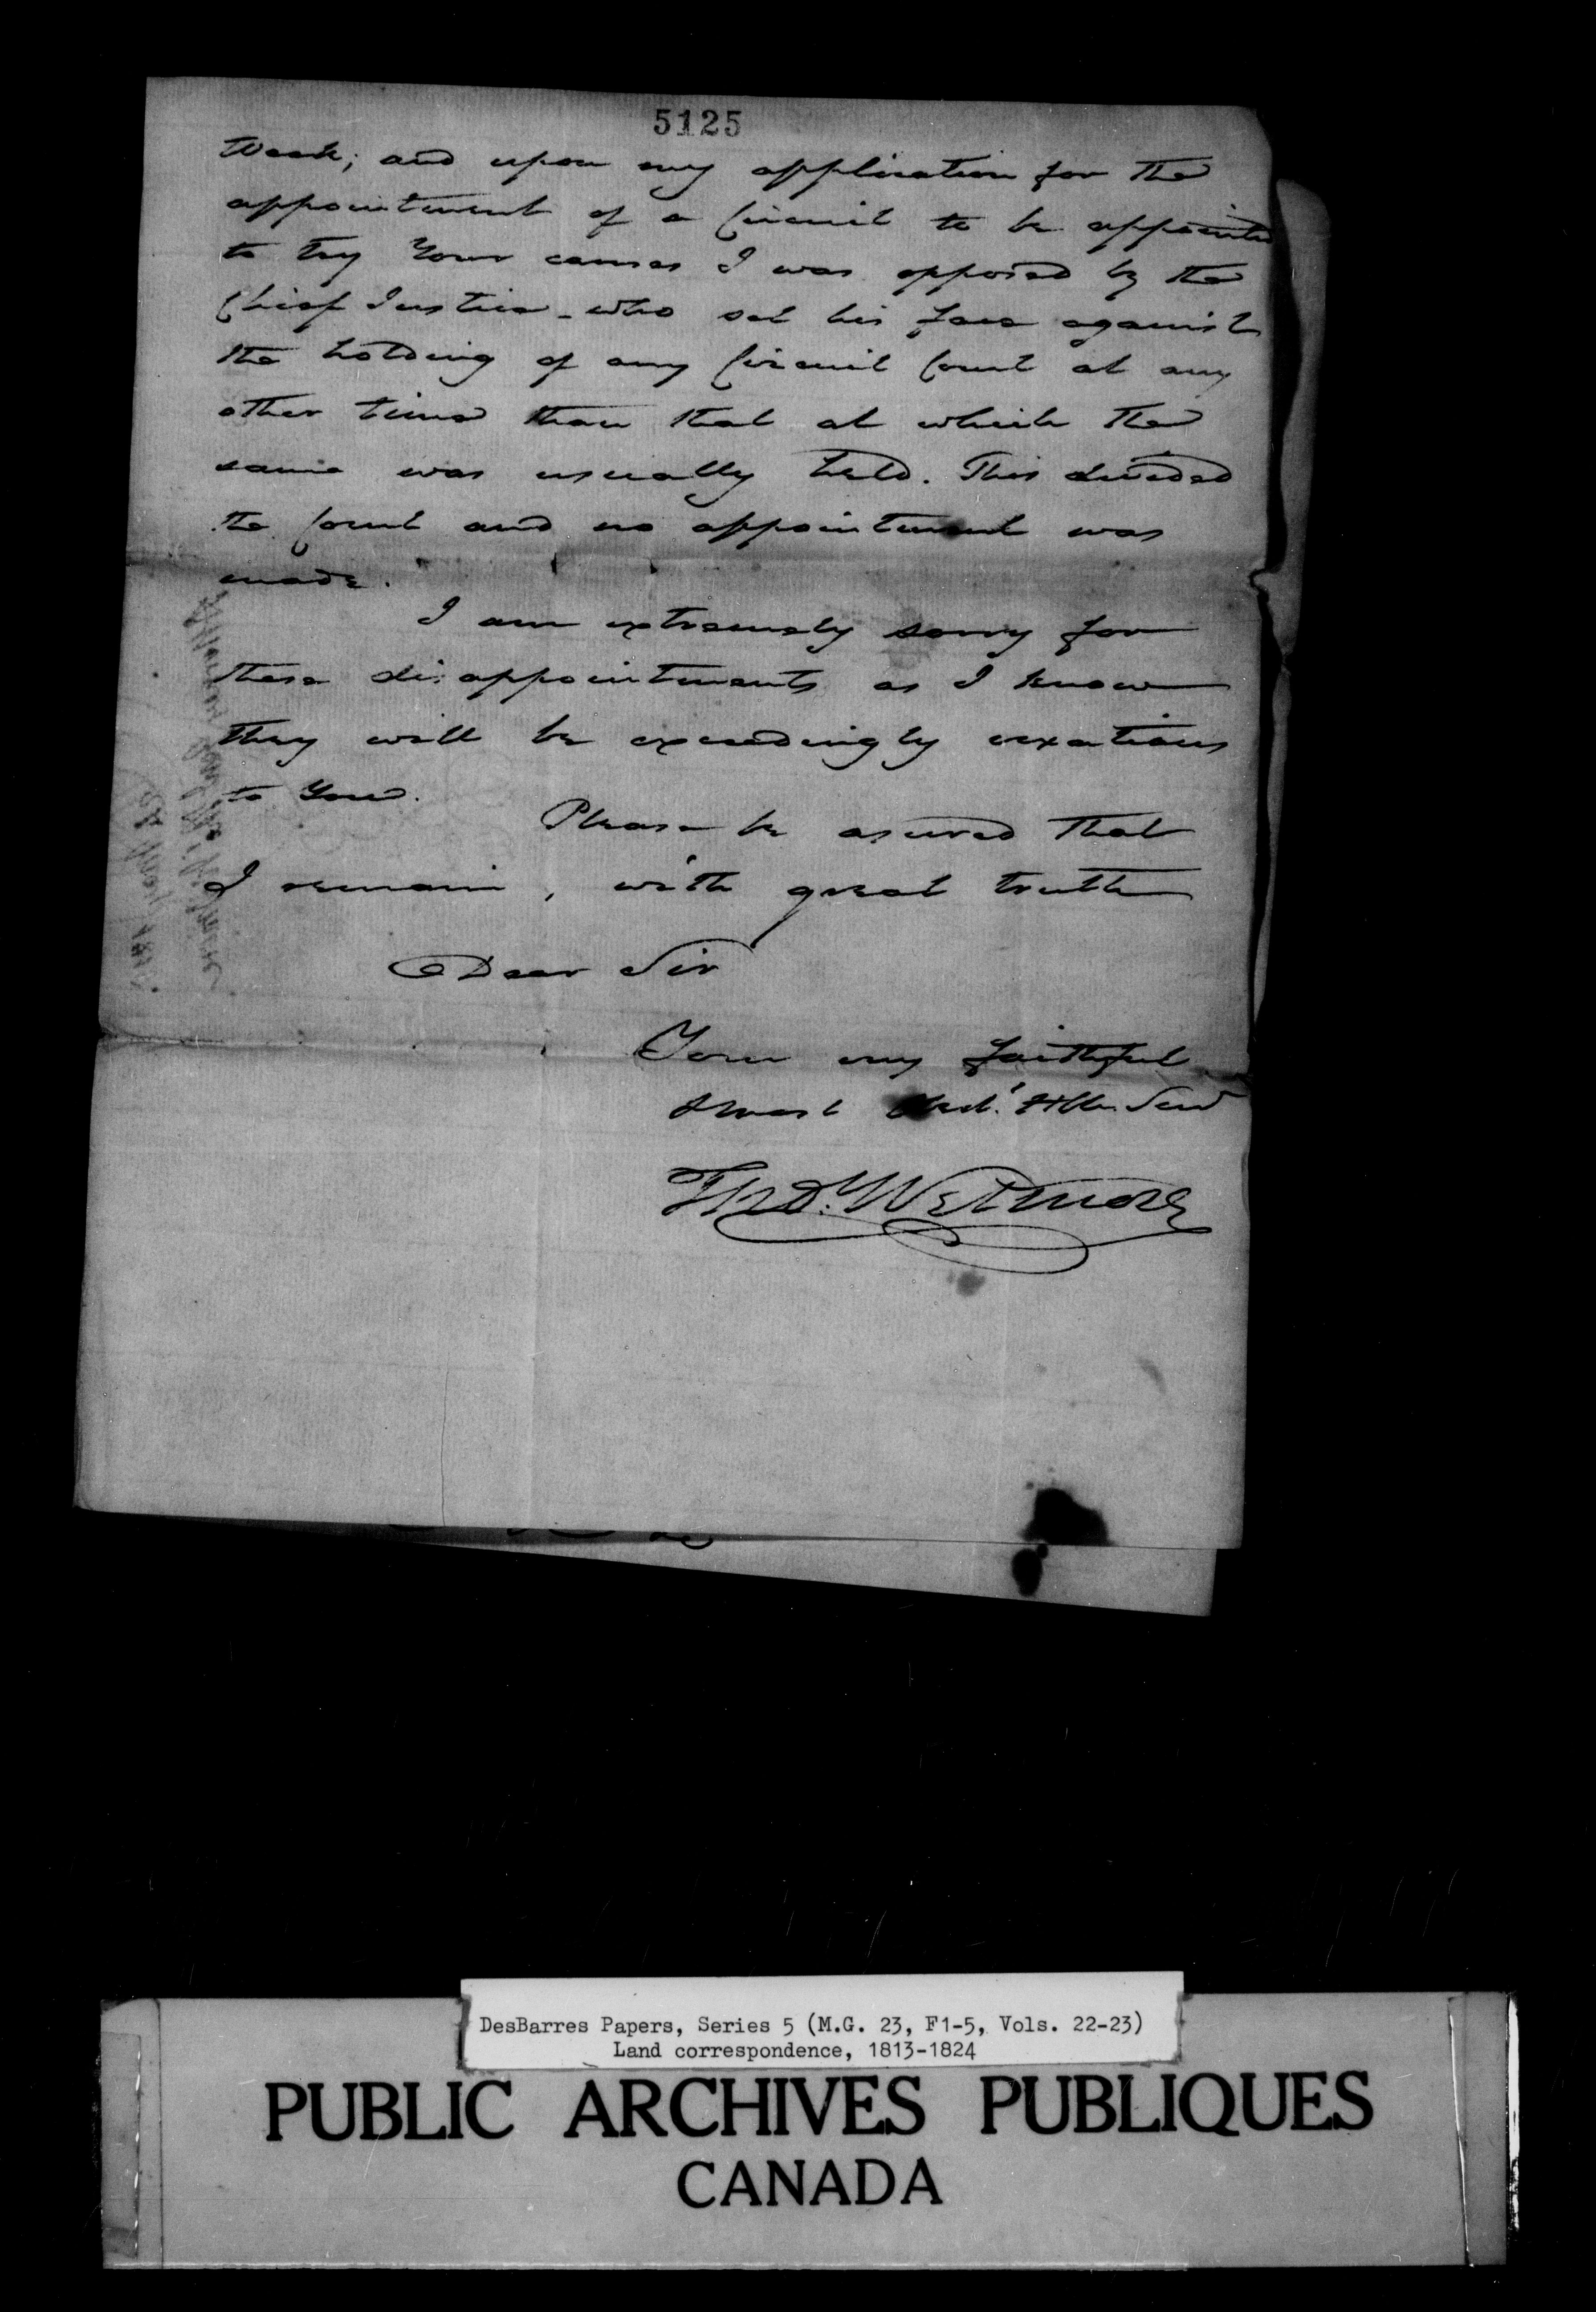 5125
Week; and upon my application for the
appointment of a Circuit to be appointed
to try Your causes I was opposed by the
Chief Justice - who set his face against
the holding of any Circuit Court at any
other time than that at which the
same was usually held. This decided
the Court and no appointment was
made.
I am extremely sorry for
these disappointments as I know
they will be exceedingly vexatious
to You.
Please be assured that
I remain, with great truth
Dear Sir
Your very faithful
& most Obed.t Hble Serv
Tho.s Wetmore
DesBarres Papers, Series 5 (M.G. 23, F1-5, Vols. 22-23)
Land correspondence, 1813-1824
PUBLIC ARCHIVES PUBLIQUES
CANADA